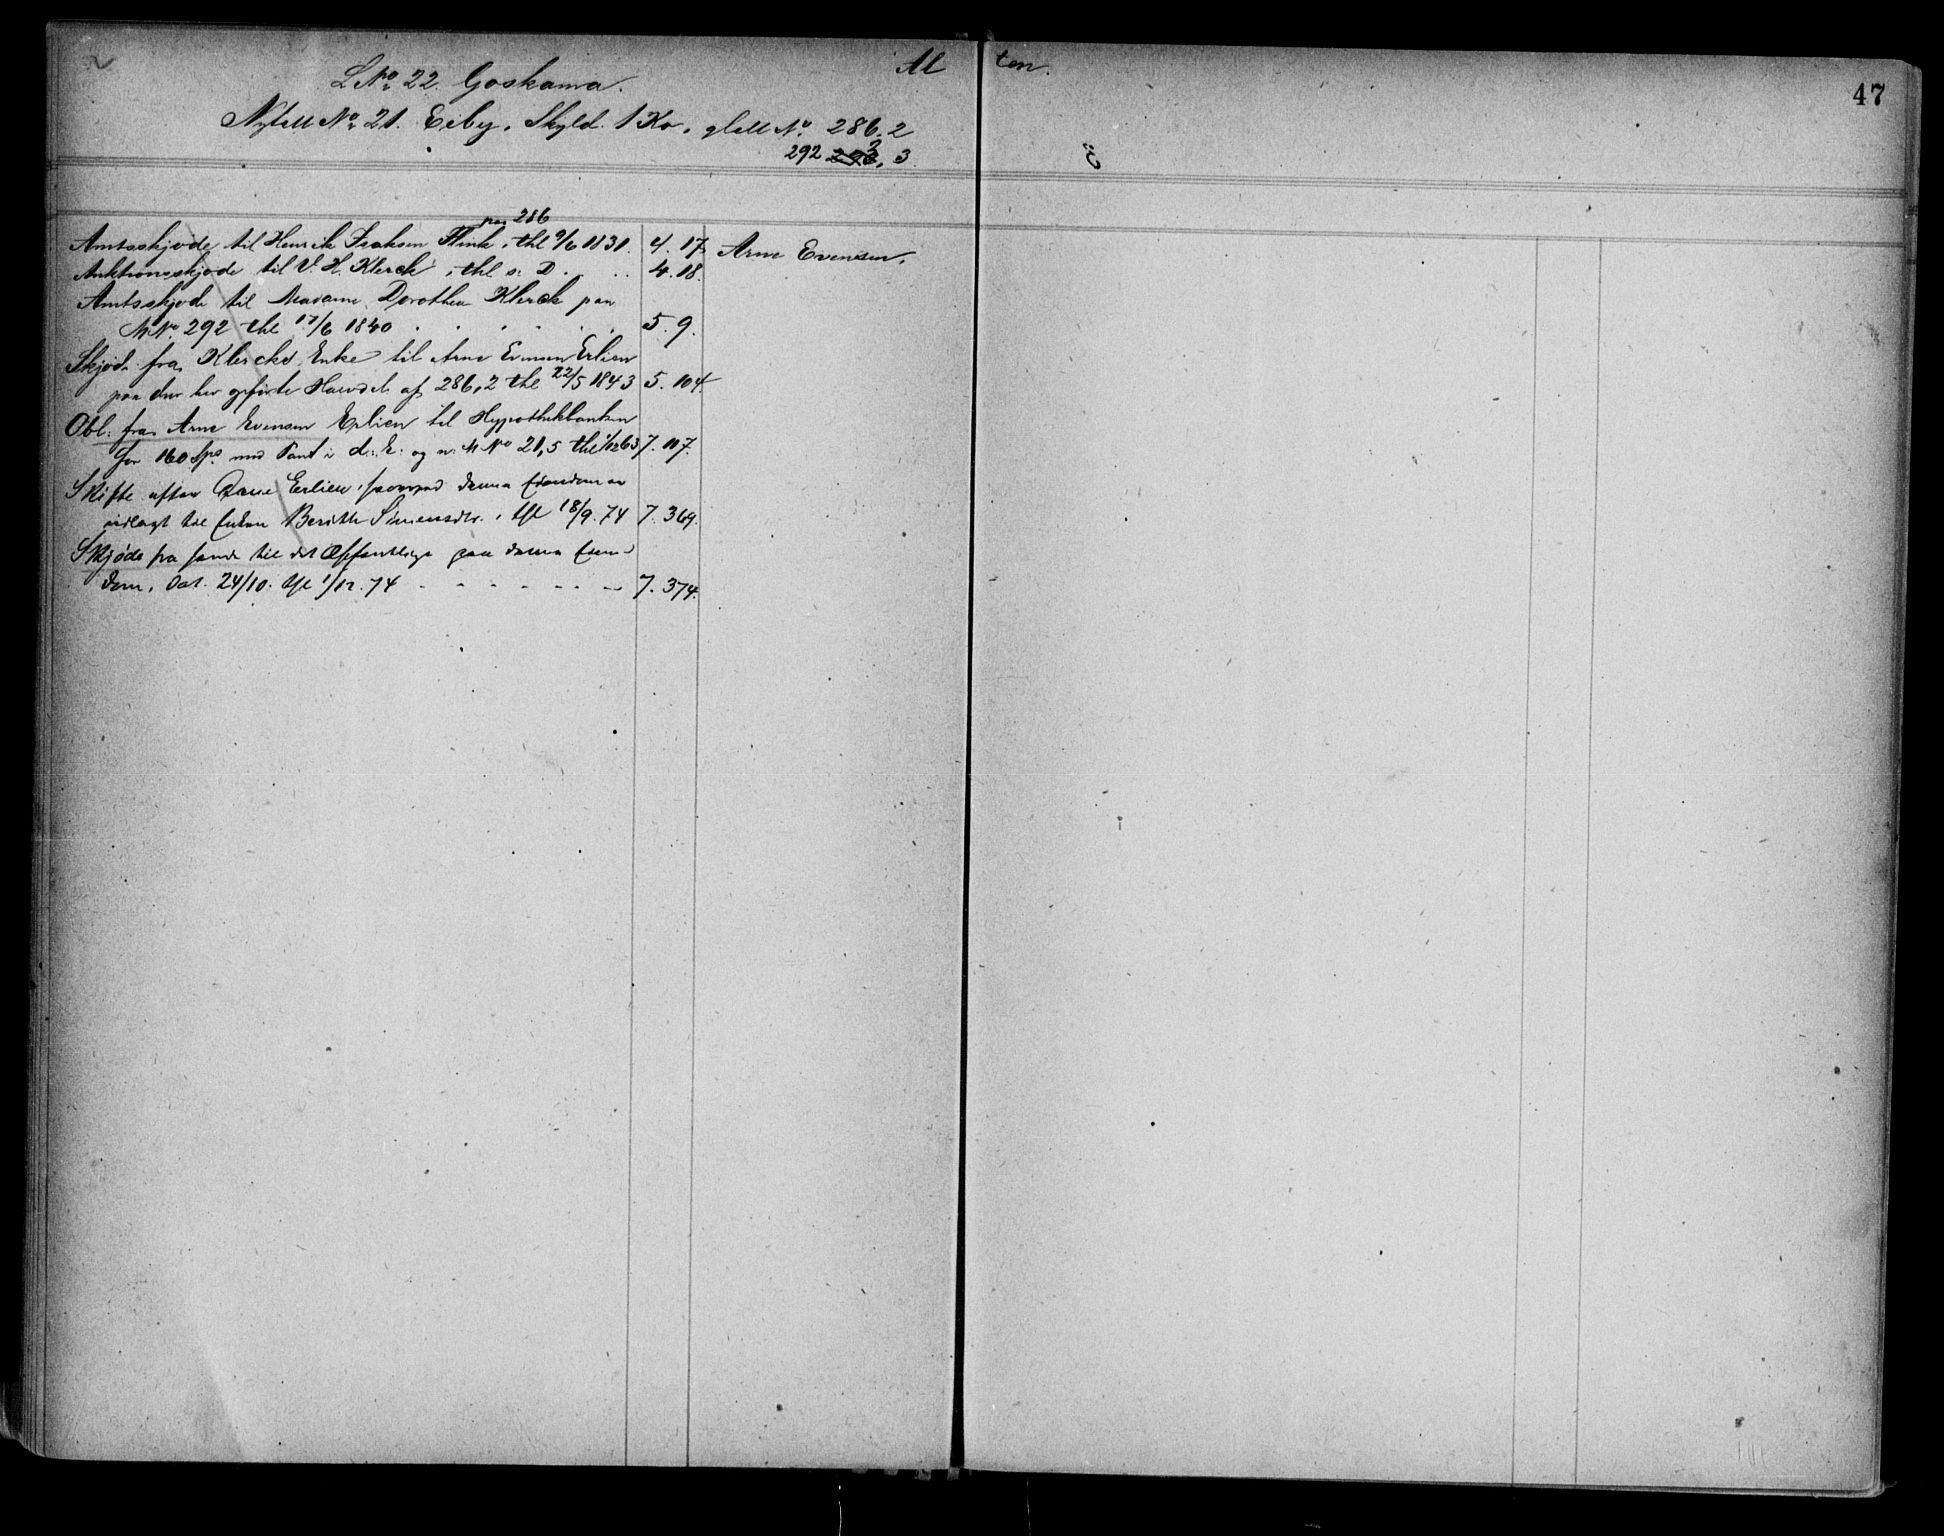 Al ten.
47
L No 22. Goskama.
Nytt M No 21. Eiby. Skyld. 1 Ko. gl M No 286. 2
292 3
paa 286
Amtsskjøde til Henrik Isaksen Flink, thl 9/6 1831. 4. 17. Arne Evensen.
Auktionsskjøde til V. H. Klerck, thl s: D. . . 4. 18.
Amtsskjøde til Madame Dorothea Klerck paa
M No 292 thl 17/6 1840 . . . . . . 5. 9.
Skjøde fra Klercks Enke til Arne Evensen Erlien
paa den her opførte Halvdel af 286,2 thl 22/5 1843 5. 104
Obl: fra Arne Evensen Erlien til Hypothekbanken
for 160 Spd med Pant i d: E: og n: M No 21,5 thl 1/12 63 7. 117.
Skifte efter Arne Erlien, hvorved denne Eiendom er
udlagt til Enken Berith Simensdtr., thl 18/9. 74 7. 369.
Skjøde fra samme til det Offentlige paa denne Eien-
dom, Dat. 24/10. thl 1/12. 74 - - - - - - 7. 374.